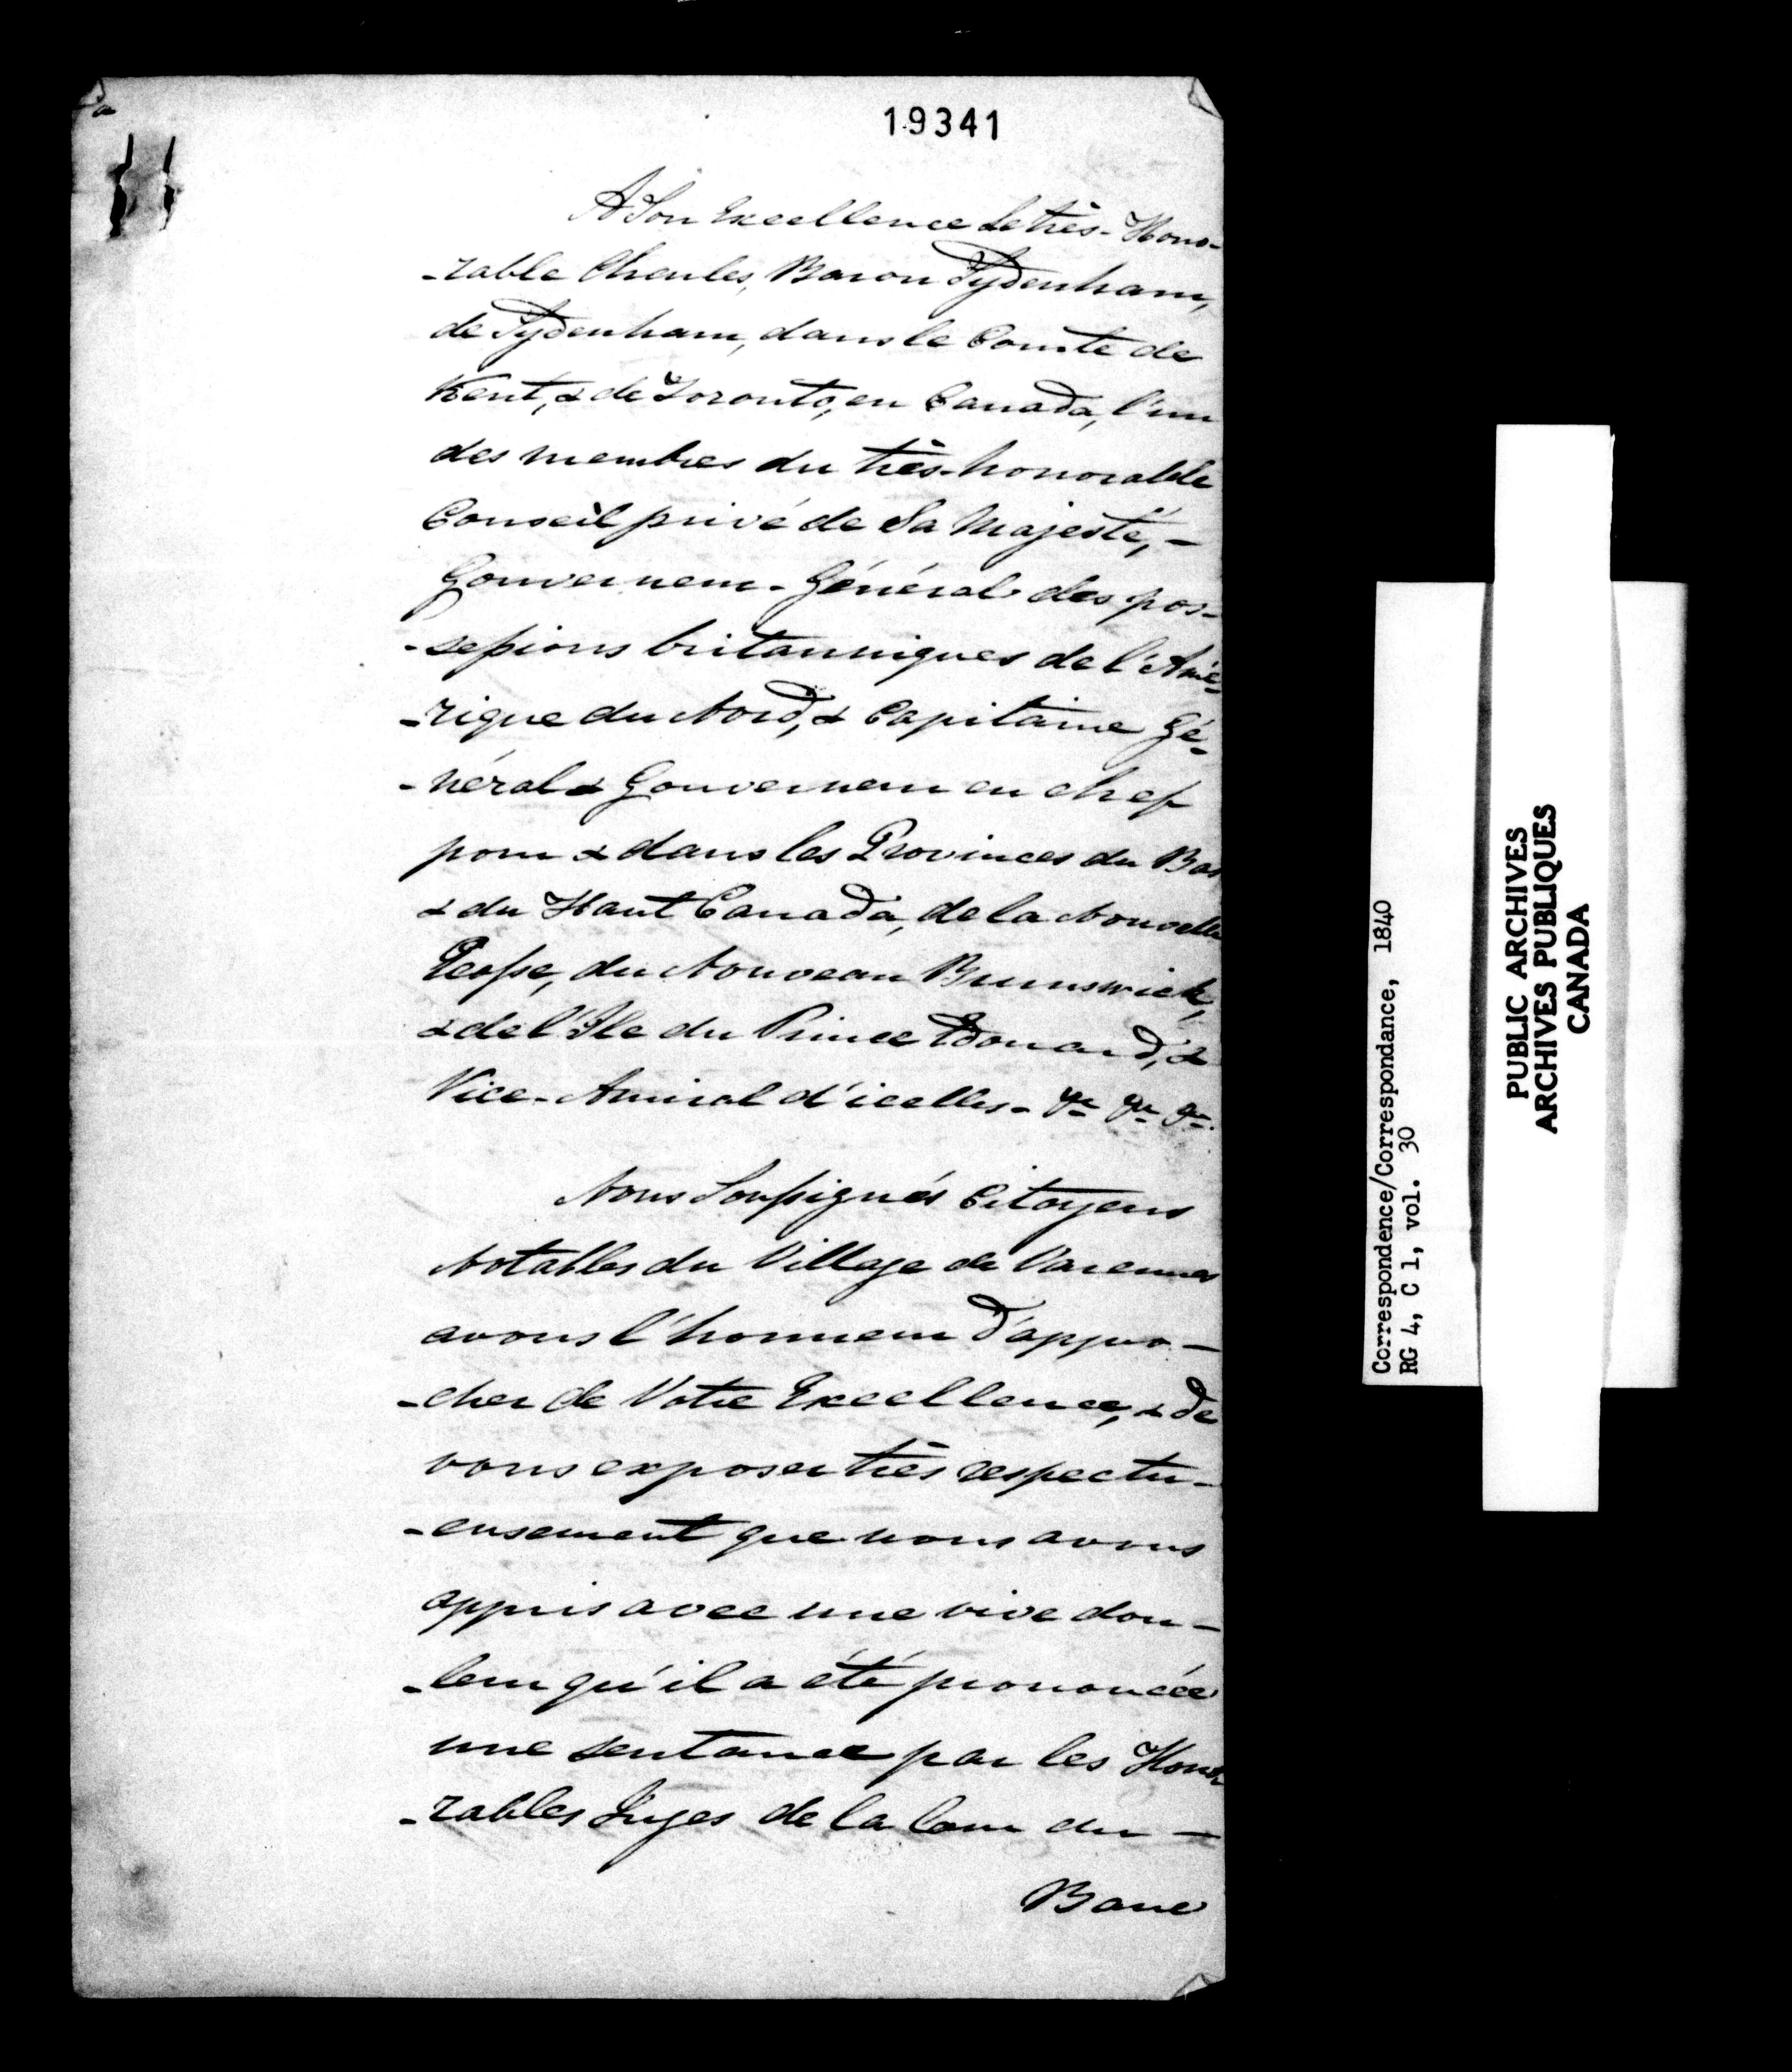 19341
A Son Excellence Le très-Hono-
-rable Charles, Baron Sydenham,
de Sydenham, dans le Comté de
Kent, & de Toronto, en Canada, l'un
des membres du très-honorable
Conseil privé de Sa Majesté, -
Gouverneur-Général des pos-
-sessions britanniques de l'Amé-
-rique du Nord, & Capitaine Gé-
-néral & Gouverneur en chef
pour & dans les Provinces du Bas
& du Haut Canada, de la Nouvelle
Ecosse, du Nouveau Brunswick,
& de l'Ile du Prince Edouard, &
Vice-Amiral d'icelles- &c &c &c.
Nous Soussignés Citoyens
Notables du Village de Varennes
avons l'honneur d'appro-
-cher de Votre Excellence, & de
vous exposer très respectu-
-eusement que nous avons
appris avec une vive dou-
-leur qu'il a été prononcée
une sentance par les Hono
-rables Juges de la Cour du -
Banc
Correspondence/Correspondance, 1840
RG 4, C 1, vol. 30
PUBLIC ARCHIVES
ARCHIVES PUBLIQUES
CANADA